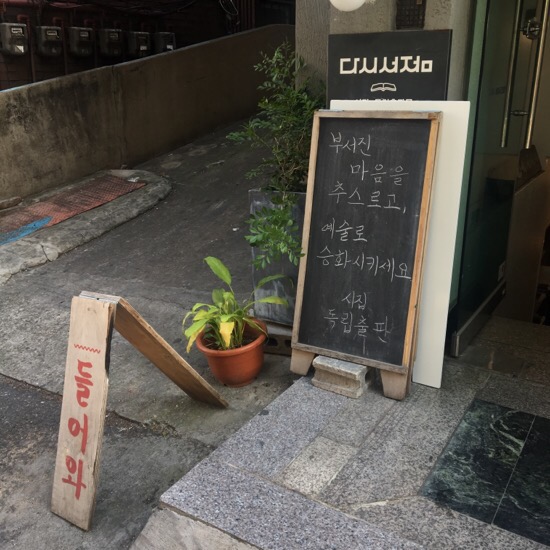 다시서점
부서진
마음을
추스르고,
예술로
승화시키세요
시집
독립출판
들어와